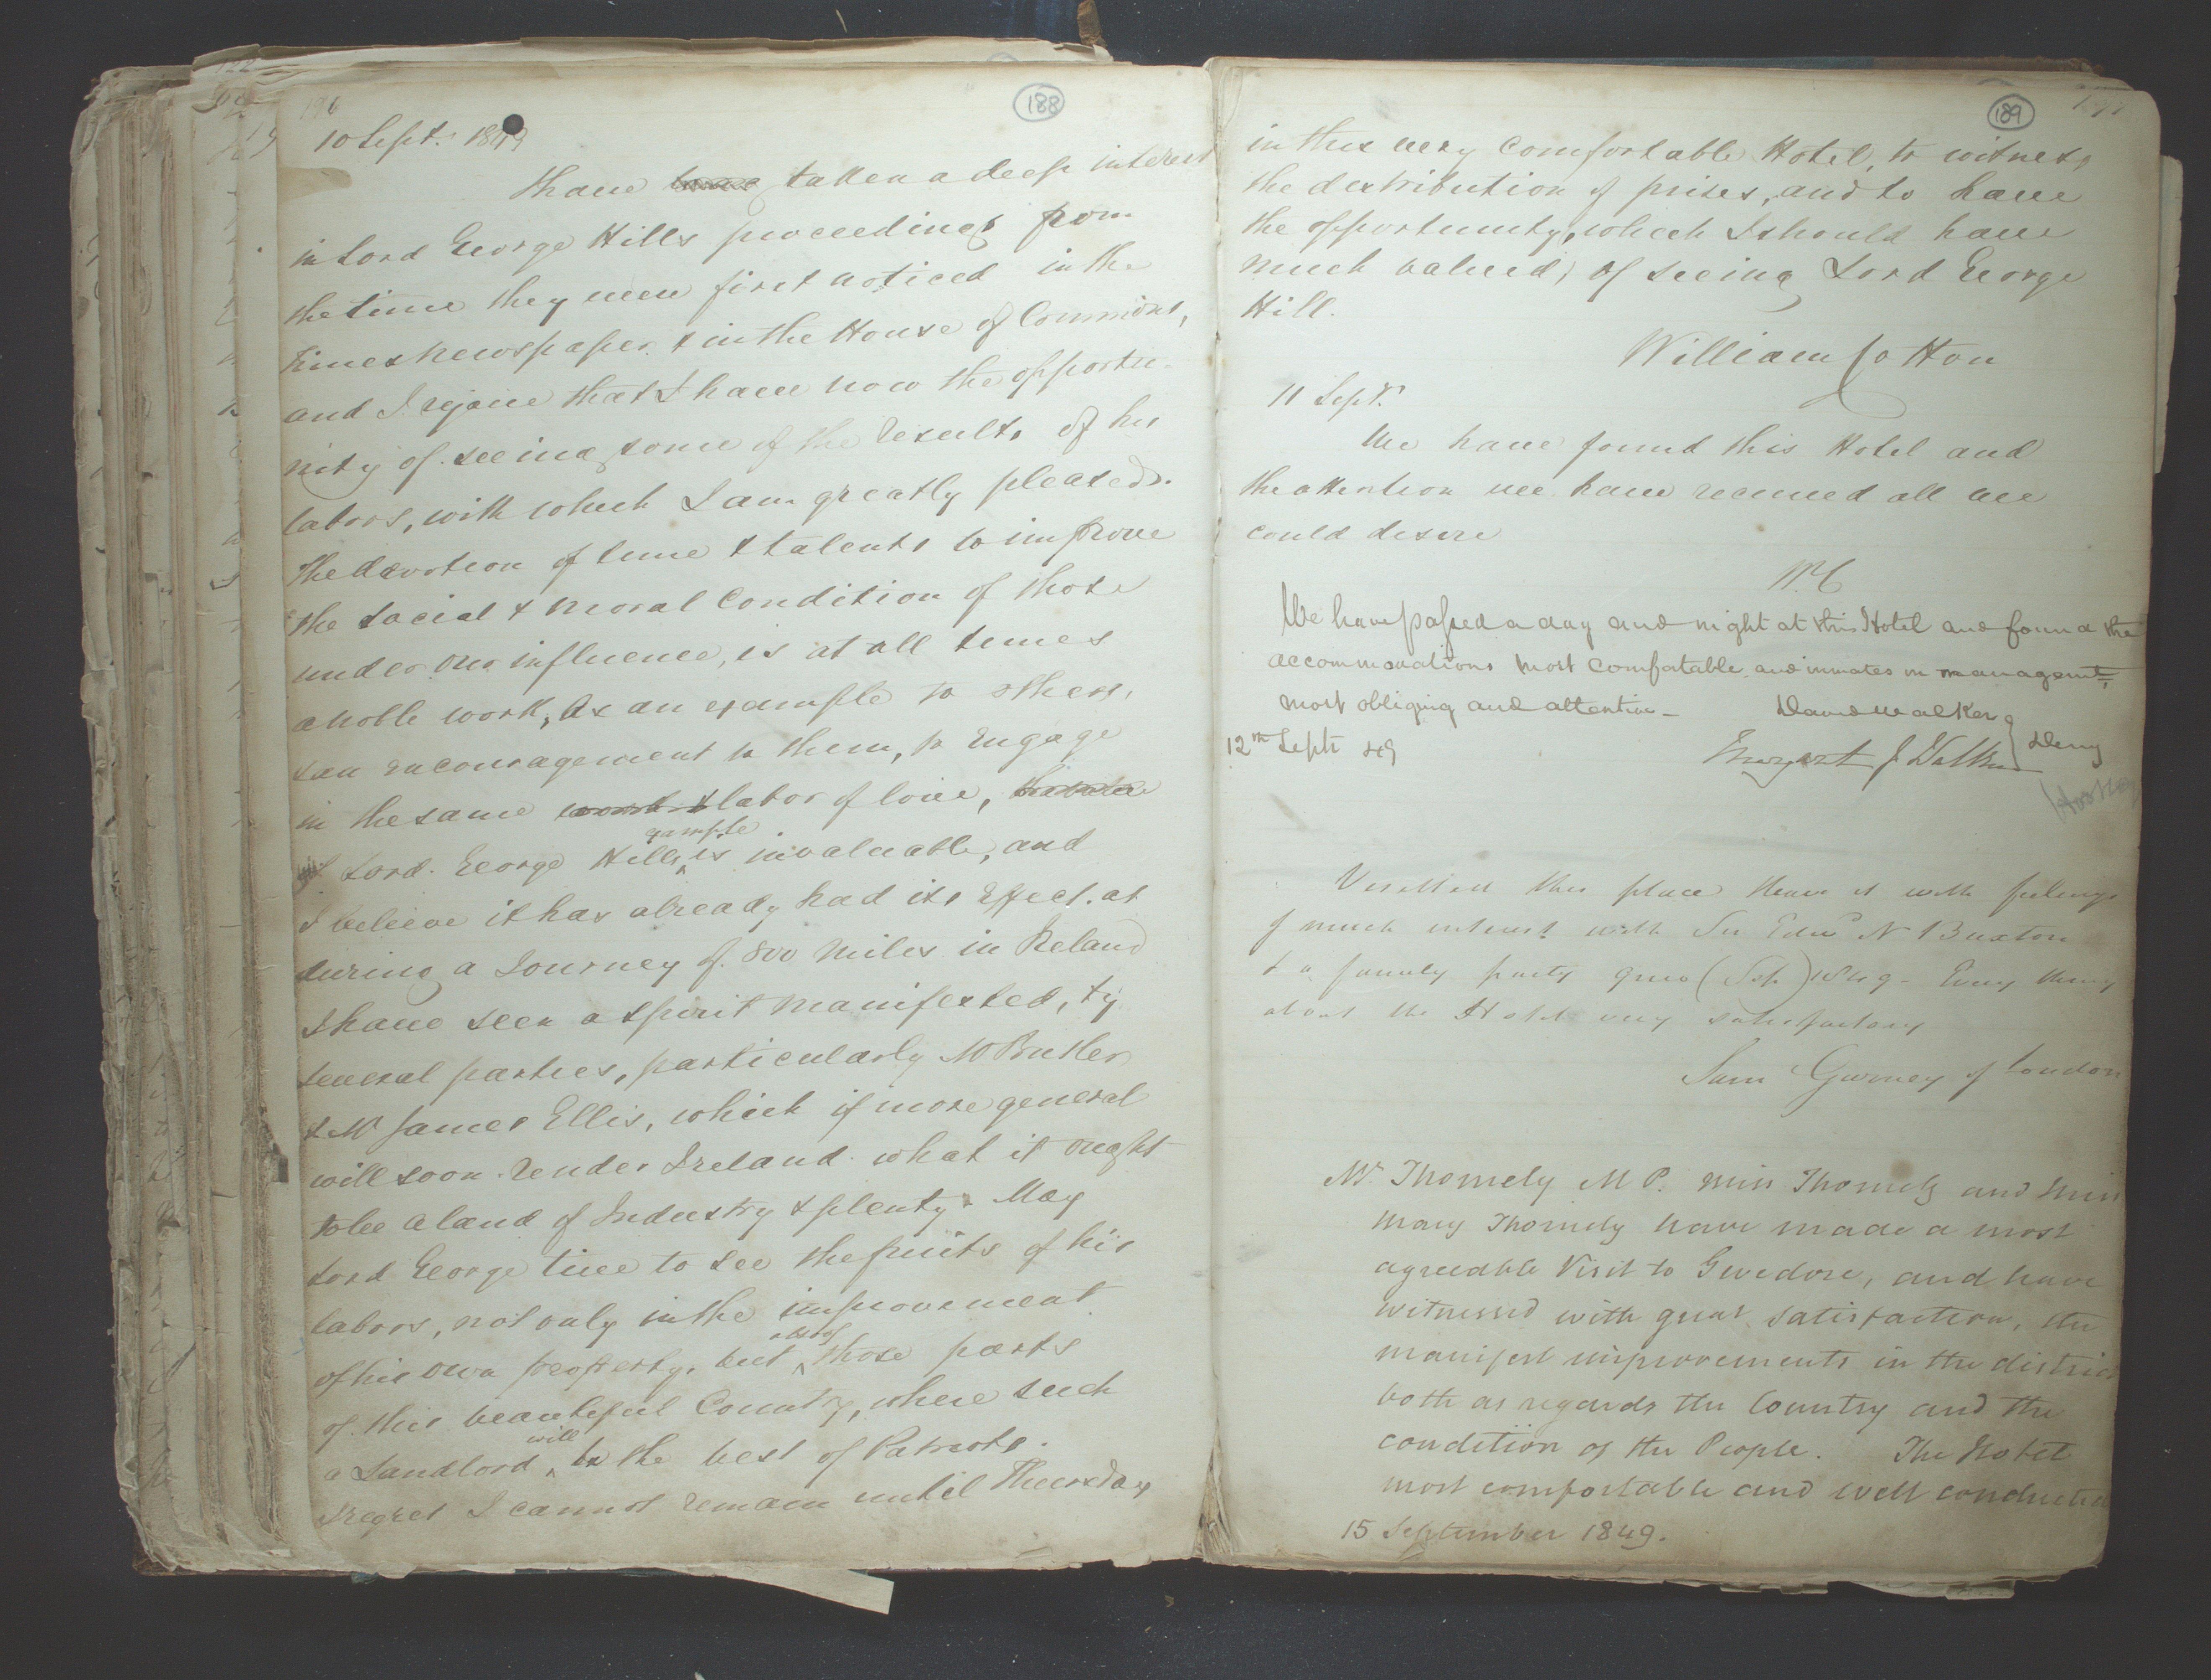 196
188
10 Sept. 1849
I have have taken a deep interest
in Lord George Hills proceedings from
the time they were first noticed in the
Times Newspaper & in the House of Commons,
and I rejoice that I have now the opportu-
nity of seeing some of the results of his
labors, with which I am greatly pleased.
The devotion of time & talents to improve
the social & moral condition of those
under our influence, is at all times
a noble work, As an example to others,
& an encouragement to them, to engage
in the same work & labor of love,
of Lord George Hills example is invaluable, and
I believe it has already had its effect. at
during a Journey of 800 miles in Ireland
I have seen a spirit manifested, by
several parties, particularly Mr Butler
& Mr James Ellis, which if more general
will soon render Ireland what it ought
to be a land of Industry & plenty. May
Lord George live to see the fruits of his
labors, not only in the improvement
of his own property, but also of those parts
of this beautiful Country, where such
a Landlord, will be the best of Patriots.
I regret I cannot remain until Thursday
189
197
in this very comfortable Hotel, to witness
the distribution of prizes, and to have
the opportunity, which I should have
much valued, of seeing Lord George
Hill.
William Cotton
11 Sept.
We have found this Hotel and
the attention we have received all we
could desire
W.C
We have passed a day and night at this Hotel and found the
accommodations most comfortable and inmates in management
most obliging and attentive -
David Walker
12th Septr 49
Margaret J Walker
Derry
Visited this place & leave it with feelings
of much interest with Sir Edwd N Buxton
& a family party 9mo (Sept) 1849 - Every thing
about the Hotel very satisfactory
Sam Gurney of London
Mr. Thornely M P. Miss Thornely and Miss
Mary Thornely have made a most
agreeable Visit to Gweedore, and have
witnessed with great satisfaction, the
manifest improvements in the district
both as regards the Country and the
condition of the People. The Hotel
most comfortable and well conducted
15 September 1849.